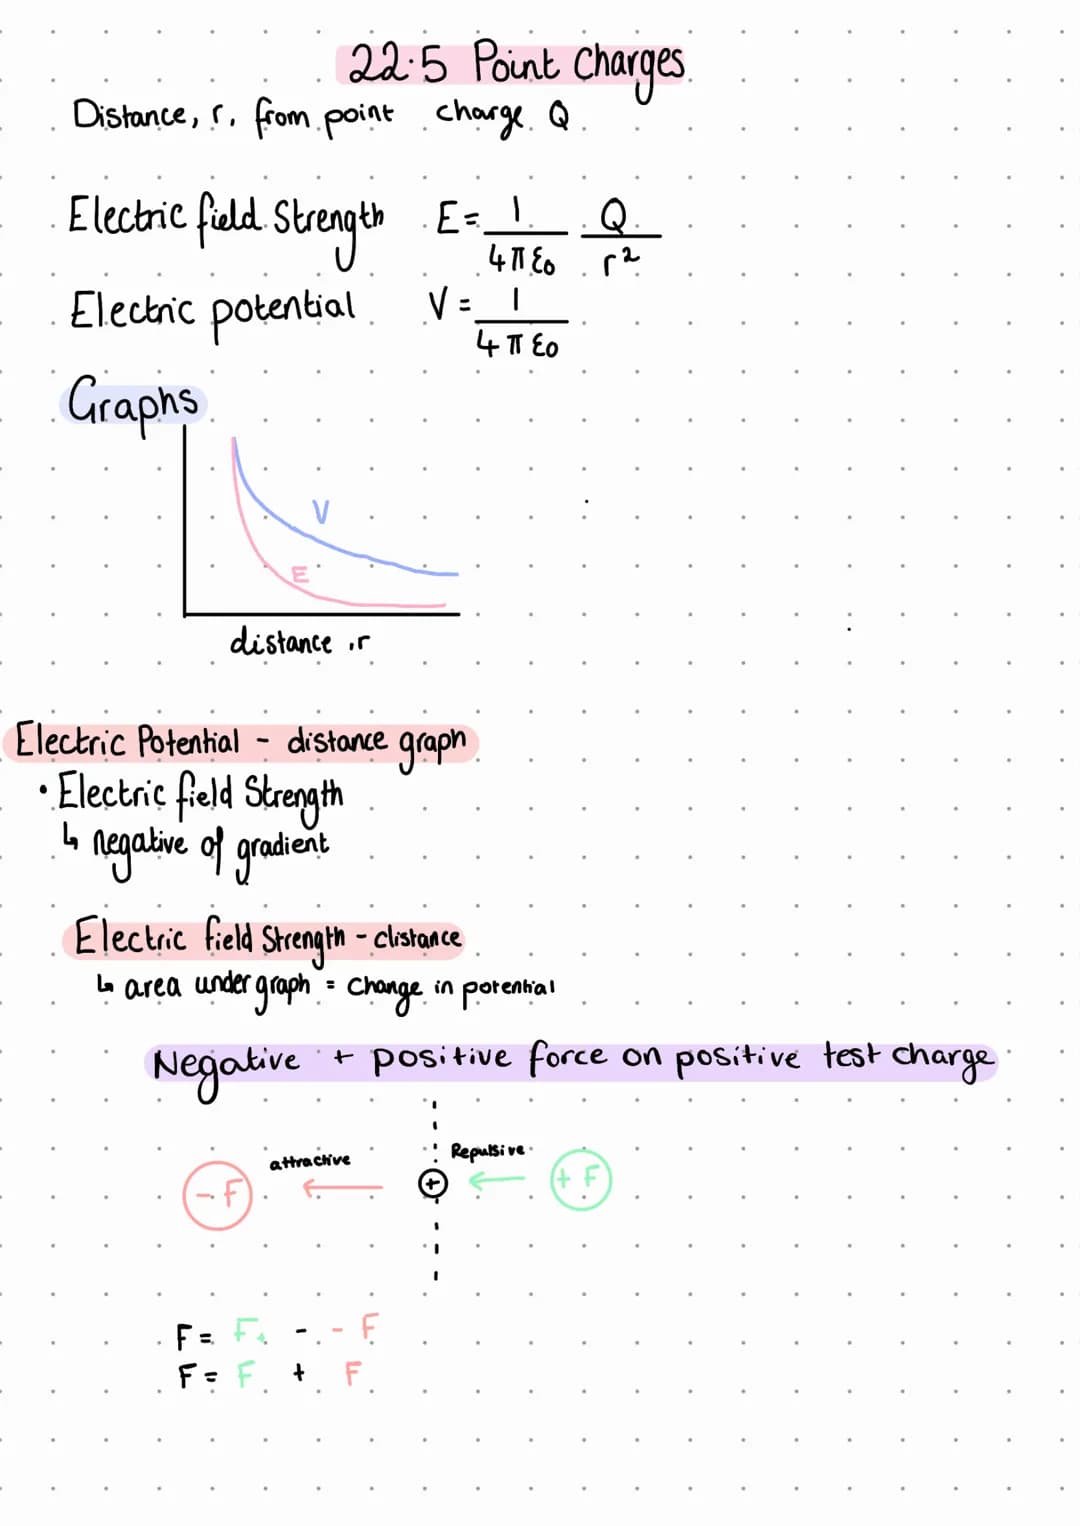 22.5 Point Charges
Distance, r, from point charge Q
Electric field Strength E = 1/4πε0 Q/r²
Electric potential V = 1/4πε0
Graphs
V
E
distance, r
Electric Potential - distance graph
• Electric field Strength
↳ negative of gradient
Electric field Strength - distance
↳ area under graph = Change in potential
Negative + positive force on positive test charge
attractive
Repulsive
- F
+
+ F
F = F - - F
F = F + F